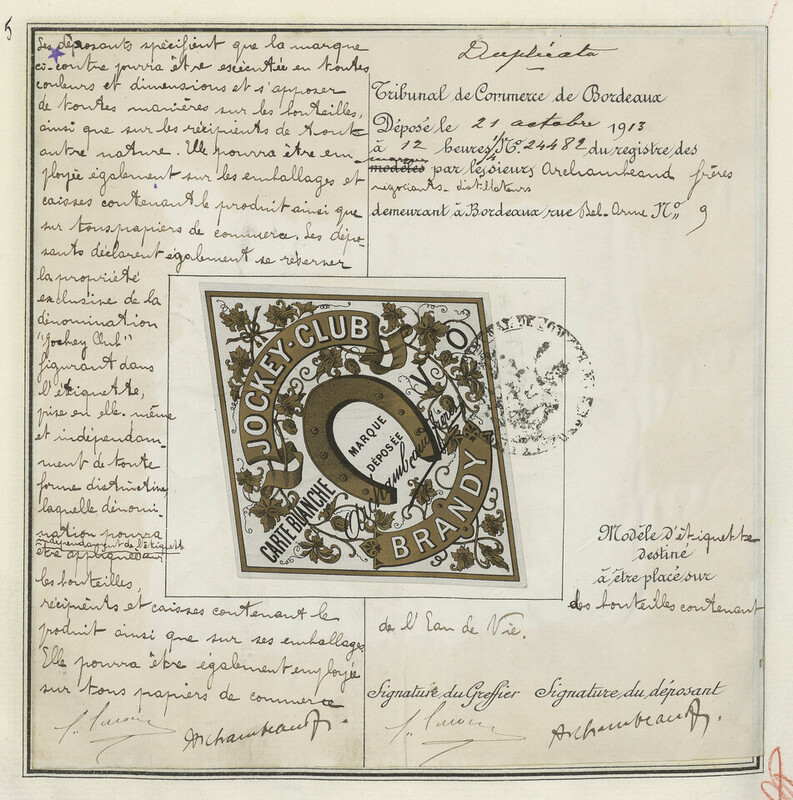 5
Les déposants spécifient que la marque
ci-contre pourra être exécutée en toutes
couleurs et dimensions et s'apposer
de toutes manières sur les bouteilles,
ainsi que sur les récipients de toute
autre nature. Elle pourra être em-
ployée également sur les emballages et
caisses contenant le produit ainsi que
sur tous papiers de commerce. Les dépo-
sants déclarent également se réserver
la propriété
exclusive de la
dénomination
"Jockey Club"
figurant dans
l'étiquette,
prise en elle-même
et indépendam-
ment de toute
forme distinctive,
laquelle dénomi-
nation pourra
être appliquée sur
les bouteilles,
récipients et caisses contenant le
produit ainsi que sur ses emballages
Elle pourra être également employée
sur tous papiers de commerce
Archambeaud
Duplicata
Tribunal de Commerce de Bordeaux
Déposé le 21 octobre 1913
à 12 heures No. 24482 du registre des
marques
modèles par les sieurs Archambeaud frères
négociants-distillateurs
demeurant à Bordeaux, rue Bel-Orme No. 9
JOCKEY-CLUB
V O
MARQUE
DÉPOSÉE
Archambeaud frères
CARTE BLANCHE
BRANDY
Modèle d'étiquette
destiné
à être placé sur
des bouteilles contenant
de l'Eau de Vie.
Signature du Greffier Signature du déposant
Archambeaud